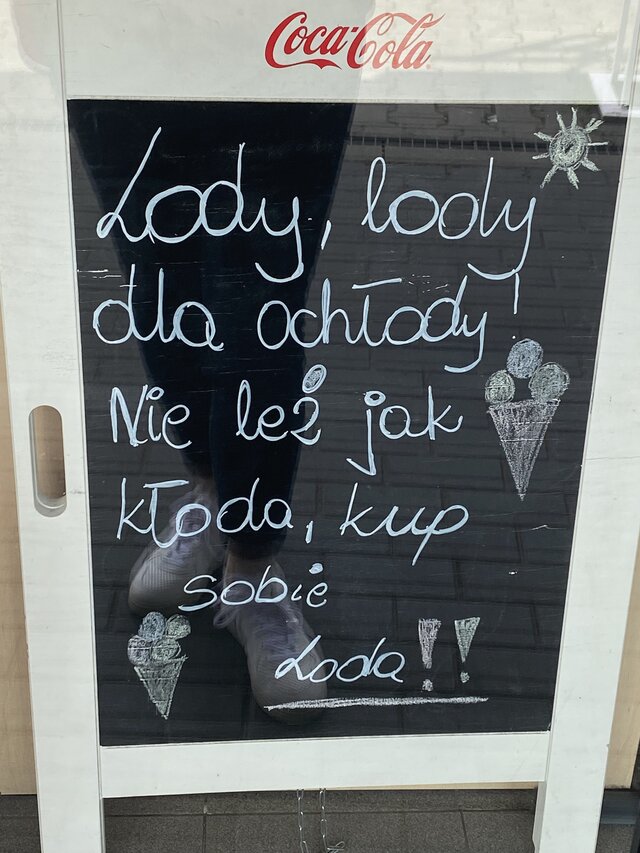 Coca-Cola
Lody, lody
dla ochłody!
Nie leż jak
kłoda, kup
sobie
Loda!!